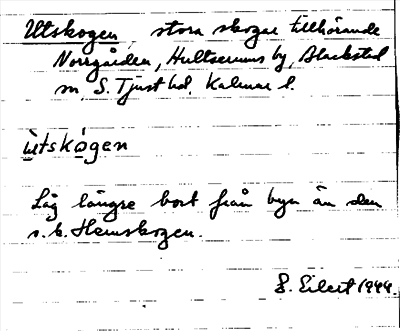 Utskogen, stora skogen tillhörande
Norrgården, Hultserums by, Blackstad
sn, S. Tjust hd, Kalmar l.
ùtskógen
Låg längre bort från byn än den
s.k. Hemskogen.
S. Eilert 1944.